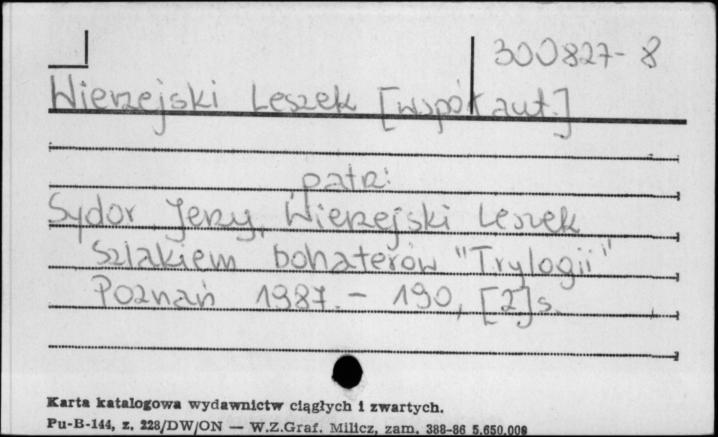 300827-8
Wierzejski Leszek [współaut.]
patrz:
Sydor Jerzy, Wierzejski Leszek
Szlakiem bohaterów "Trylogii"
Poznań 1987. - 190, [2]s.
Karta katalogowa wydawnictw ciągłych i zwartych.
Pu-B-144, z. 228/DW/ON — W.Z.Graf. Milicz, zam. 388-86 5.650.000